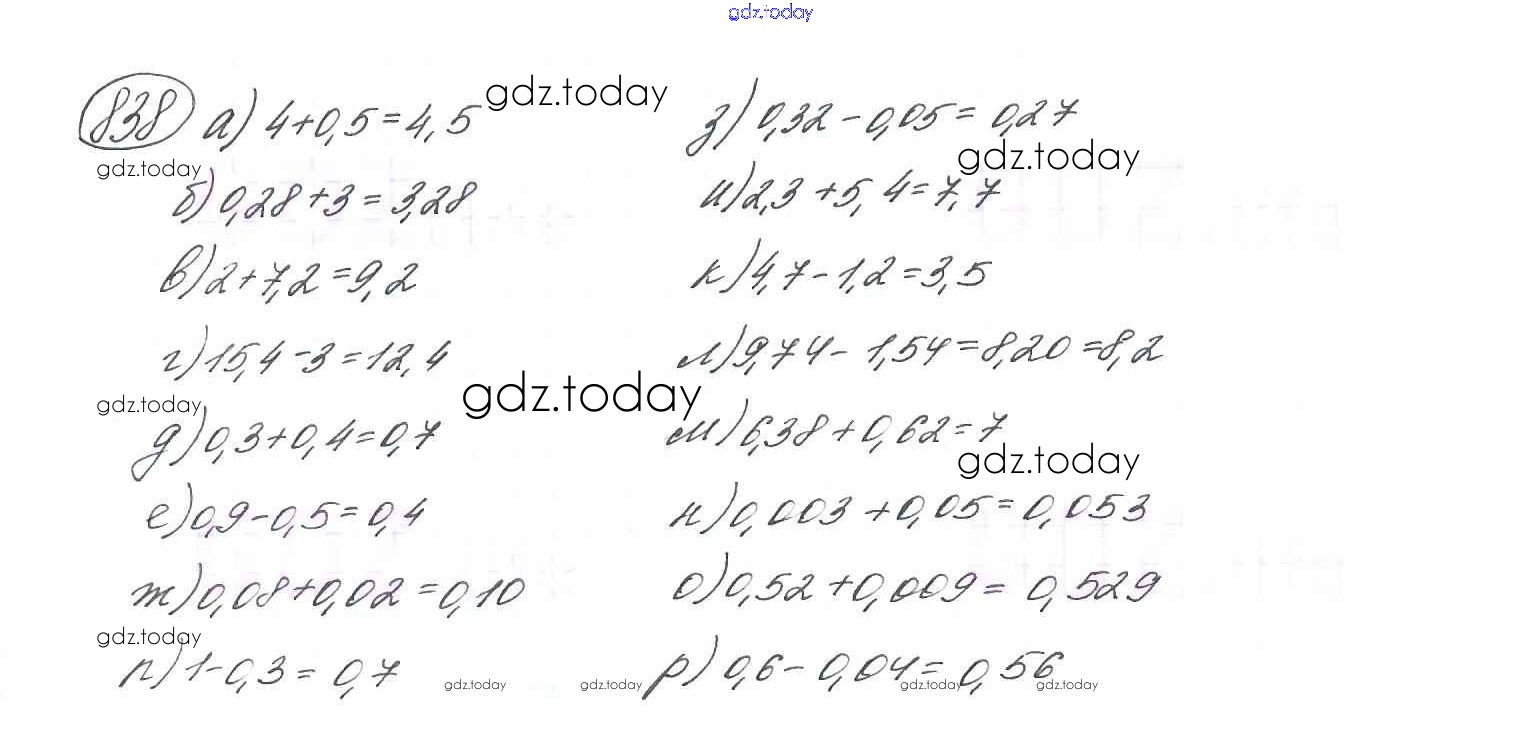 gdz.today
838 а) 4+0,5=4,5
gdz.today
з) 0,32-0,05=0,27
gdz.today
gdz.today
б) 0,28+3=3,28
и) 2,3+5,4=7,7
в) 2+7,2=9,2
к) 4,7-1,2=3,5
г) 15,4-3=12,4
л) 9,74-1,54=8,20=8,2
gdz.today
gdz.today
д) 0,3+0,4=0,7
м) 6,38+0,62=7
gdz.today
е) 0,9-0,5=0,4
н) 0,003+0,05=0,053
ж) 0,08+0,02=0,10
о) 0,52+0,009=0,529
gdz.today
п) 1-0,3=0,7
р) 0,6-0,04=0,56
gdz.today
gdz.today
gdz.today
gdz.today